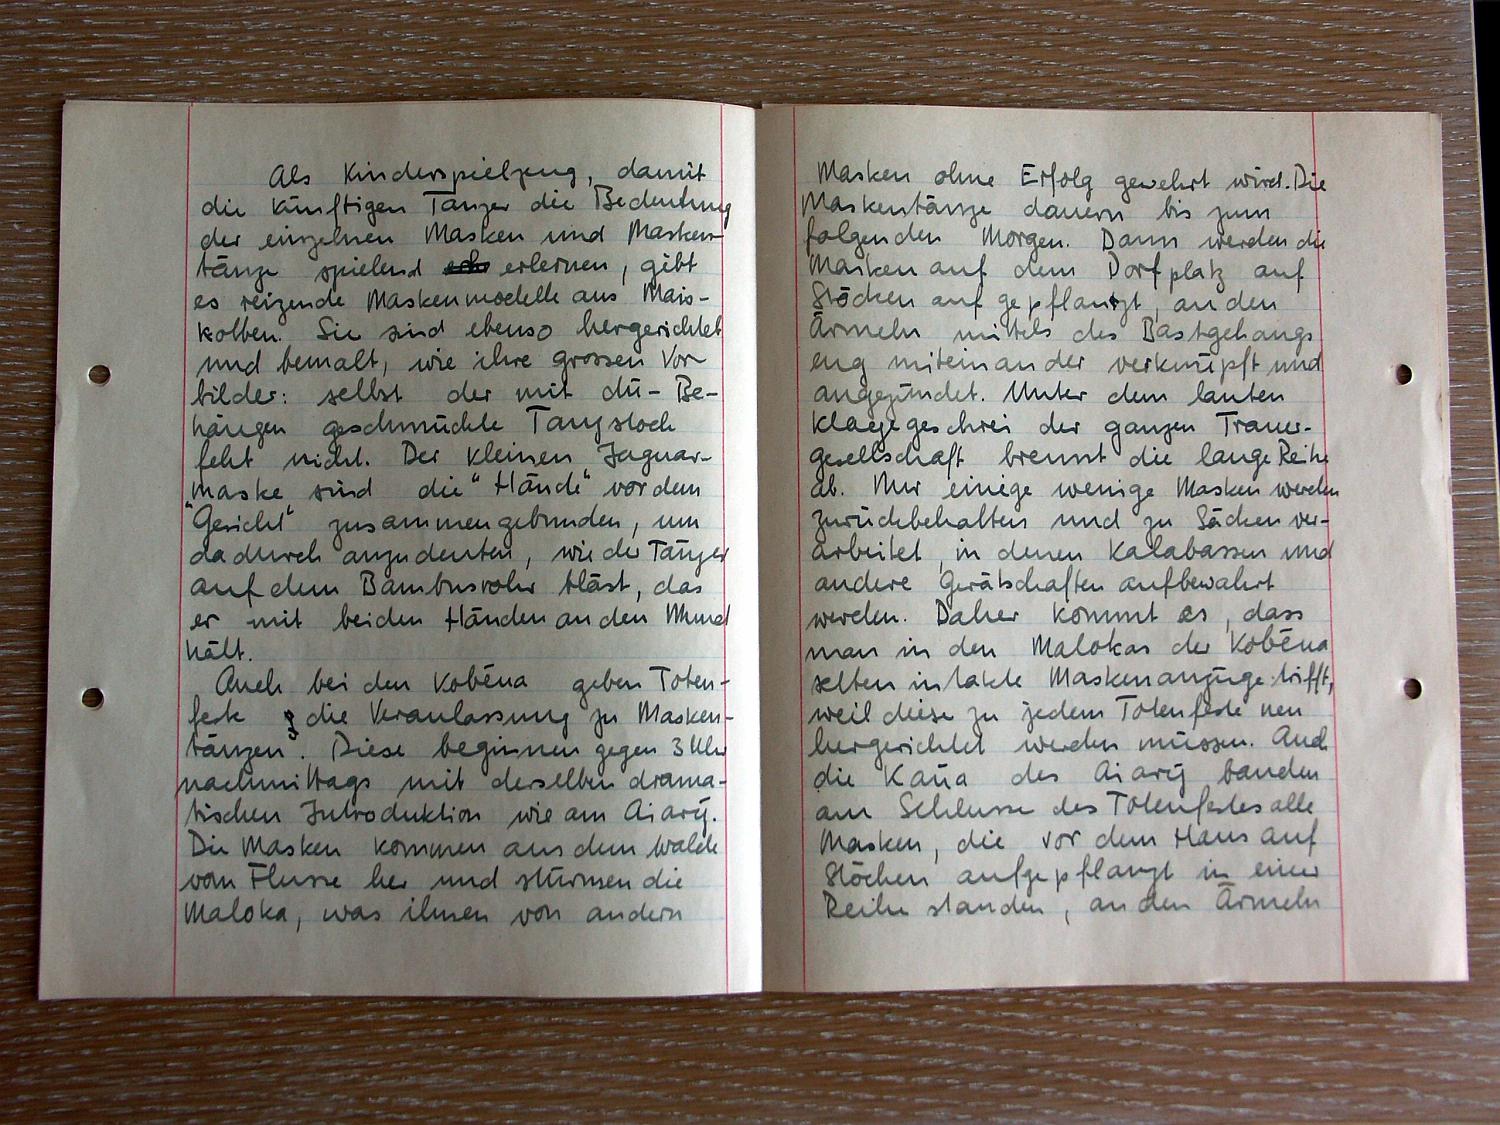 Als Kinderspielzeug, damit
die künftigen Tänzer die Bedeutung
der einzelnen Masken und Masken-
tänze spielend erlernen, gibt
es reizende Maskenmodelle aus Mais-
kolben. Sie sind ebenso hergerichtet
und bemalt, wie ihre grossen Vor
bilder: selbst der mit dü- Be-
hängen geschmückte Tanzstock
fehlt nicht. Der kleinen Jaguar-
maske sind die "Hände" vor dem
"Gesicht" zusammengebunden, um
dadurch anzudeuten, wie der Tänzer
auf dem Bambusrohr bläst, das
er mit beiden Händen an den Mund
hält.
Auch bei den Kobéua geben Toten-
feste die Veranlassung zu Masken-
tänzen. Diese beginnen gegen 3 Uhr
nachmittags mit derselben drama-
tischen Introduktion wie am Aiarý.
Die Masken kommen aus dem Walde
vom Flusse her und stürmen die
Maloka, was ihnen von andern
Masken ohne Erfolg gewehrt wird. Die
Maskentänze dauern bis zum
folgenden Morgen. Dann werden die
Masken auf dem Dorfplatz auf
Stöcken aufgepflanzt, an den
Ärmeln mittels des Bastgehangs
eng miteinander verknüpft und
angezündet. Unter dem lauten
Klagegeschrei der ganzen Trauer-
gesellschaft brennt die lange Reihe
ab. Nur einige wenige Masken werden
zurückbehalten und zu Säcken ver-
arbeitet, in denen Kalabassen und
andere Gerätschaften aufbewahrt
werden. Daher kommt es, dass
man in den Malokas der Kobéua
selten intakte Maskenanzüge trifft,
weil diese zu jedem Totenfeste neu
hergerichtet werden müssen. Auch
die Káua des Aiarý banden
am Schlusse des Totenfestes alle
Masken, die vor dem Haus auf
Stöcken aufgepflanzt in einer
Reihe standen, an den Ärmeln